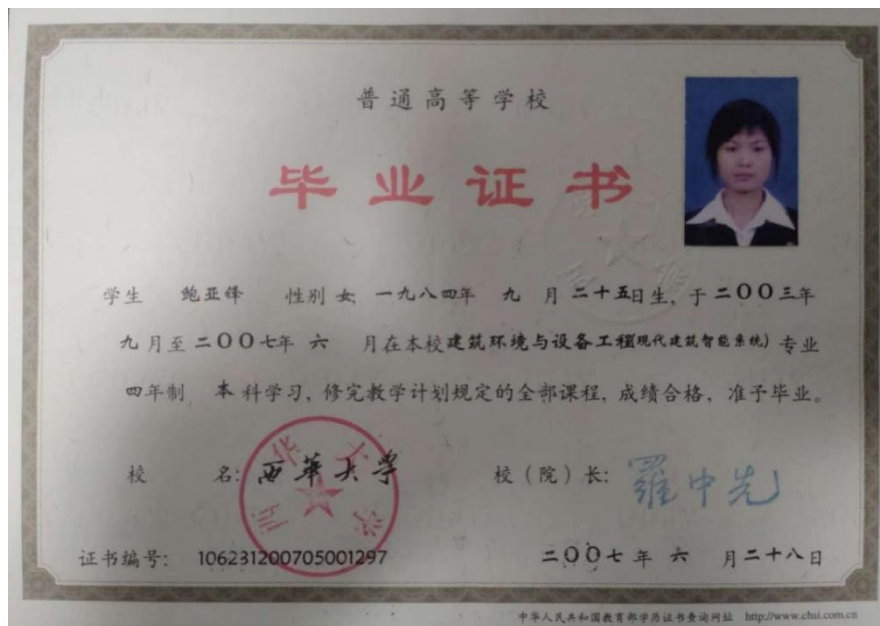 普通高等学校
毕业证书
学生 鲍亚锋 性别 女, 一九八四年 九 月 二十五日生, 于 二〇〇三年
九 月至 二〇〇七年 六 月在本校 建筑环境与设备工程(现代建筑智能系统) 专业
四年制 本 科学习, 修完教学计划规定的全部课程, 成绩合格, 准予毕业。
校 名: 西华大学 校(院)长: 羅中先
西华大学
证书编号: 106231200705001297 二〇〇七 年 六 月二十八日
中华人民共和国教育部学历证书查询网址 http://www.chsi.com.cn